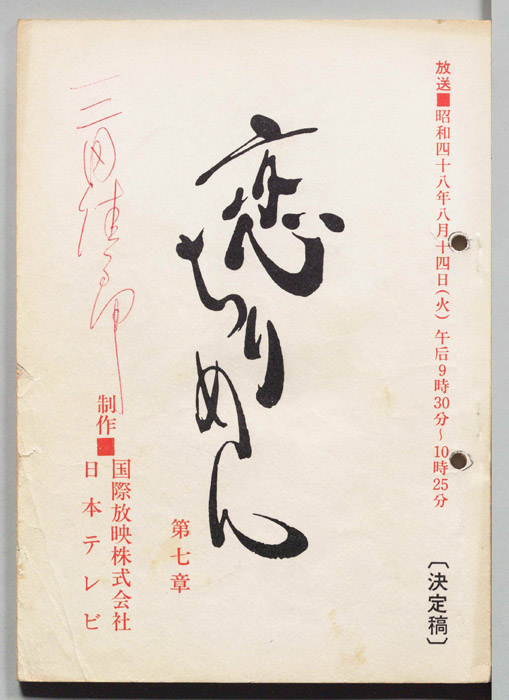 放送■昭和四十八年八月十四日(火) 午后9時30分〜10時25分
〔決定稿〕
恋ちりめん
第七章
制作■国際放映株式会社
日本テレビ